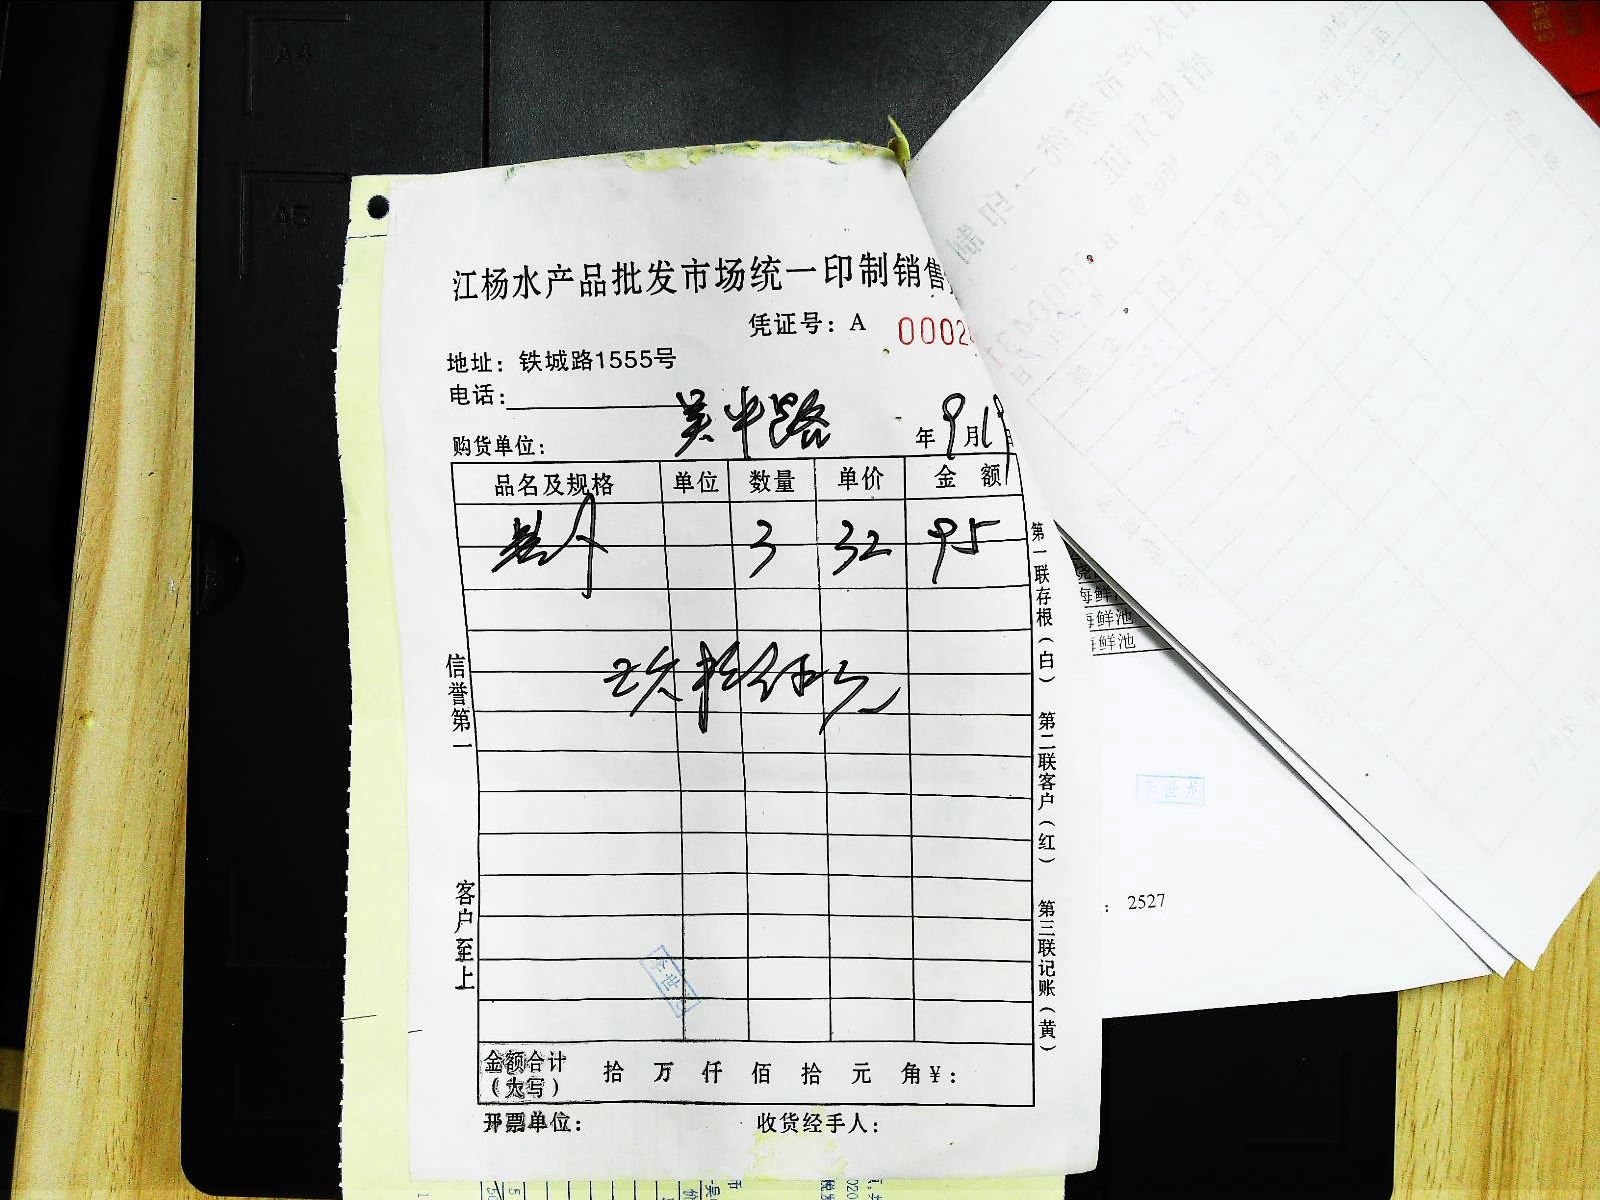 A4
A5
江杨水产品批发市场统一印制销售
凭证号：A 0002
地址：铁城路1555号
电话：
购货单位：
吴中路
年 9月19
品名及规格 单位 数量 单价 金 额
3 32 95
玖拾伍元
信誉第一
客户至上
第一联存根（白）
第二联客户（红）
第三联记账（黄）
李世龙
金额合计（大写） 拾 万 仟 佰 拾 元 角￥：
开票单位： 收货经手人：
海鲜池
海鲜池
李世龙
：2527